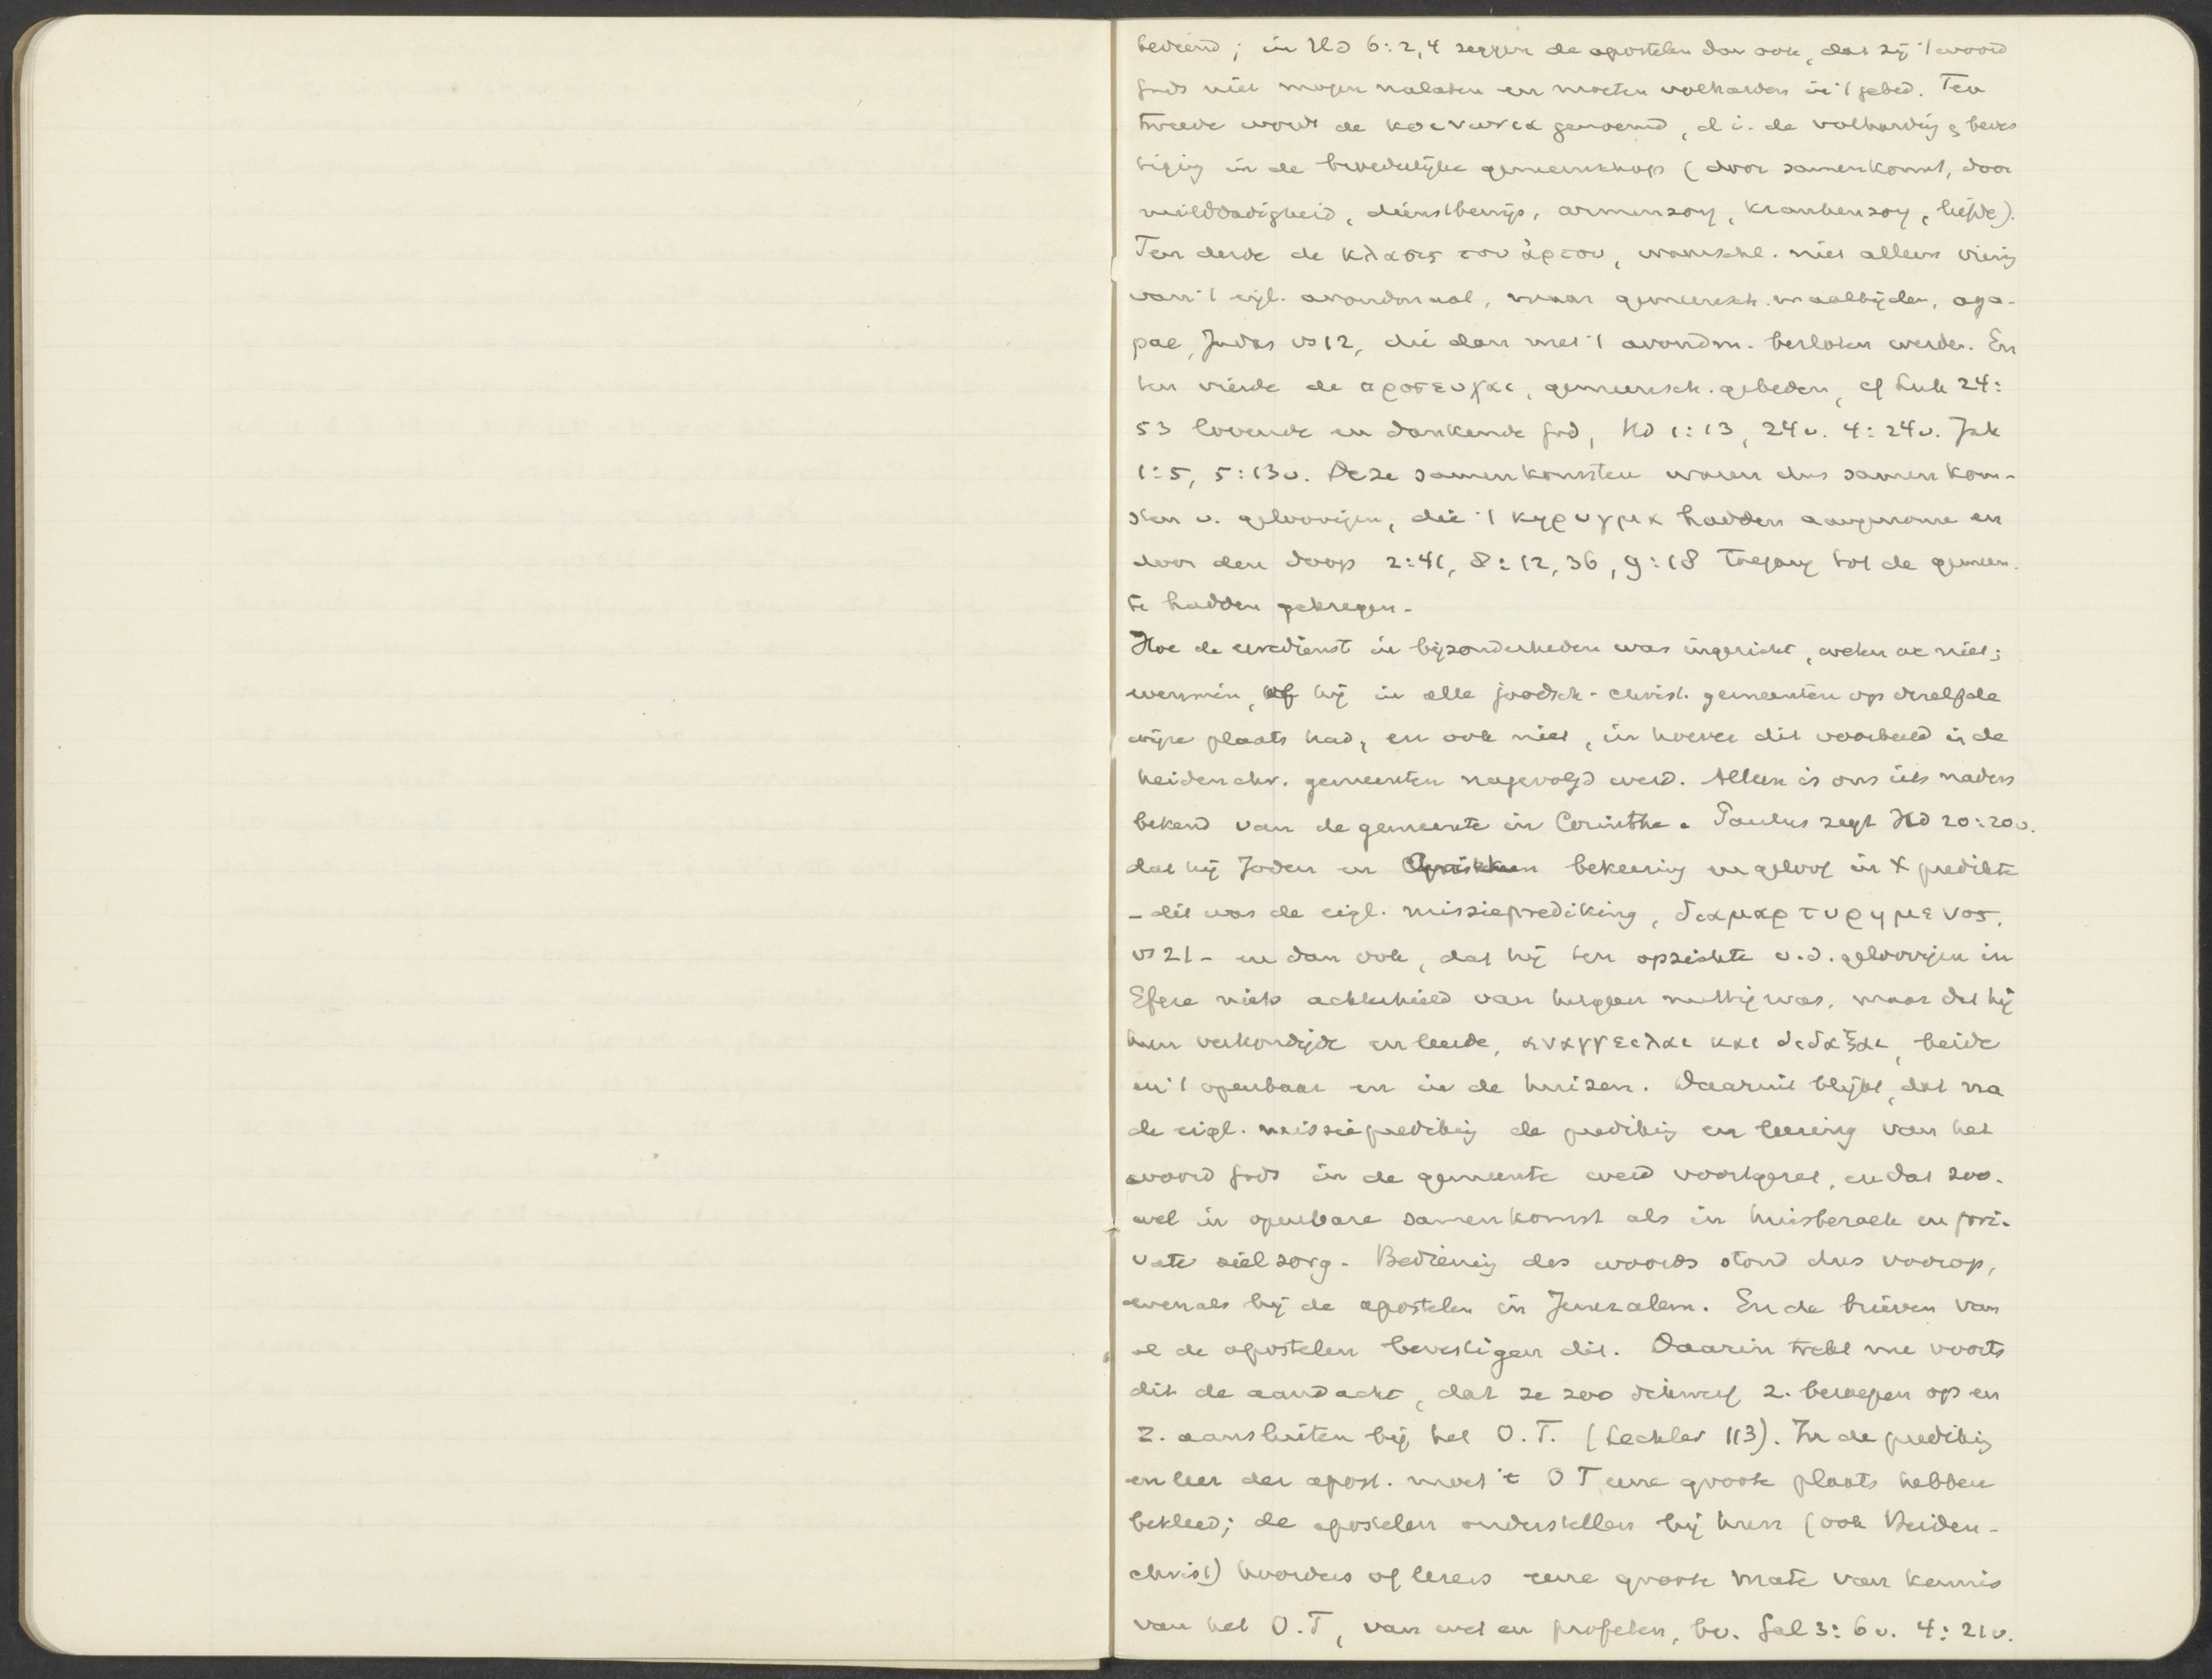 bediend; in Hd 6:2,4 zeggen de apostelen dan ook, dat zij 't woord
Gods niet mogen nalaten en moeten volharden in 't gebed. Ten
tweede wordt de κοινωνια genoemd, d.i. de volharding & beves
tiging in de broederlijke gemeenschap (door samenkomst, door
milddadigheid, dienstbetoon, armenzorg, krankenzorg, liefde).
Ten derde de κλασις του ἀρτου, waarschl. niet alleen viering
van 't eigl. avondmaal, maar gemeensch. maaltijden, aga-
pae, Judas vs 12, die dan met 't avondm. besloten werden. En
ten vierde de προσευχαι, gemeensch. gebeden, cf Luk 24:
53 lovende en dankende God, Hd 1:13, 24v. 4:24v. Jak
1:5, 5:13v. Deze samenkomsten waren dus samenkom-
sten v. geloovigen, die 't κηρυγμα hadden aangenome en
door den doop 2:41, 8:12, 36, 9:18 toegang tot de gemeen-
te hadden gekregen.
Hoe de eredienst in bijzonderheden was ingericht, weten we niet;
evenmin, of hij in alle joodsch-christ. gemeenten op dezelfde
wijze plaats had, en ook niet, in hoever dit voorbeeld in de
heidenchr. gemeenten nagevolgd werd. Alleen is ons iets naders
bekend van de gemeente in Corinthe. Paulus zegt Hd 20:20v.
dat hij Joden en Grieken bekeering en geloof in X predikte
- dit was de eigl. missieprediking, διαμαρτυρημενος,
vs 21 - en dan ook, dat hij ten opzichte v.d. geloovigen in
Efeze niets achterhield van hetgeen nuttig was, maar dat hij
hun verkondigde en leerde, αναγγειλαι και διδαξαι, beide
in 't openbaar en in de huizen. Daaruit blijkt, dat na
de eigl. missieprediking de prediking en leering van het
woord Gods in de gemeente werd voortgezet, en dat zoo-
wel in openbare samenkomst als in huisbezoek en pri-
vate zielzorg. Bediening des woords stond dus voorop,
evenals bij de apostelen in Jeruzalem. En de brieven van
al de apostelen bevestigen dit. Daarin trekt me voorts
dit de aandacht, dat ze zoo dikwerf z. beroepen op en
z. aansluiten bij het O.T. (Lechler 113). In de prediking
en leer der apost. moet 't OT eene groote plaats hebben
bekleed; de apostelen onderstellen bij hun (ook Heiden-
christ) hoorders of lezers eene groote mate van kennis
van het O.T, van wet en profeten, bv. Gal 3:6v. 4:21v.